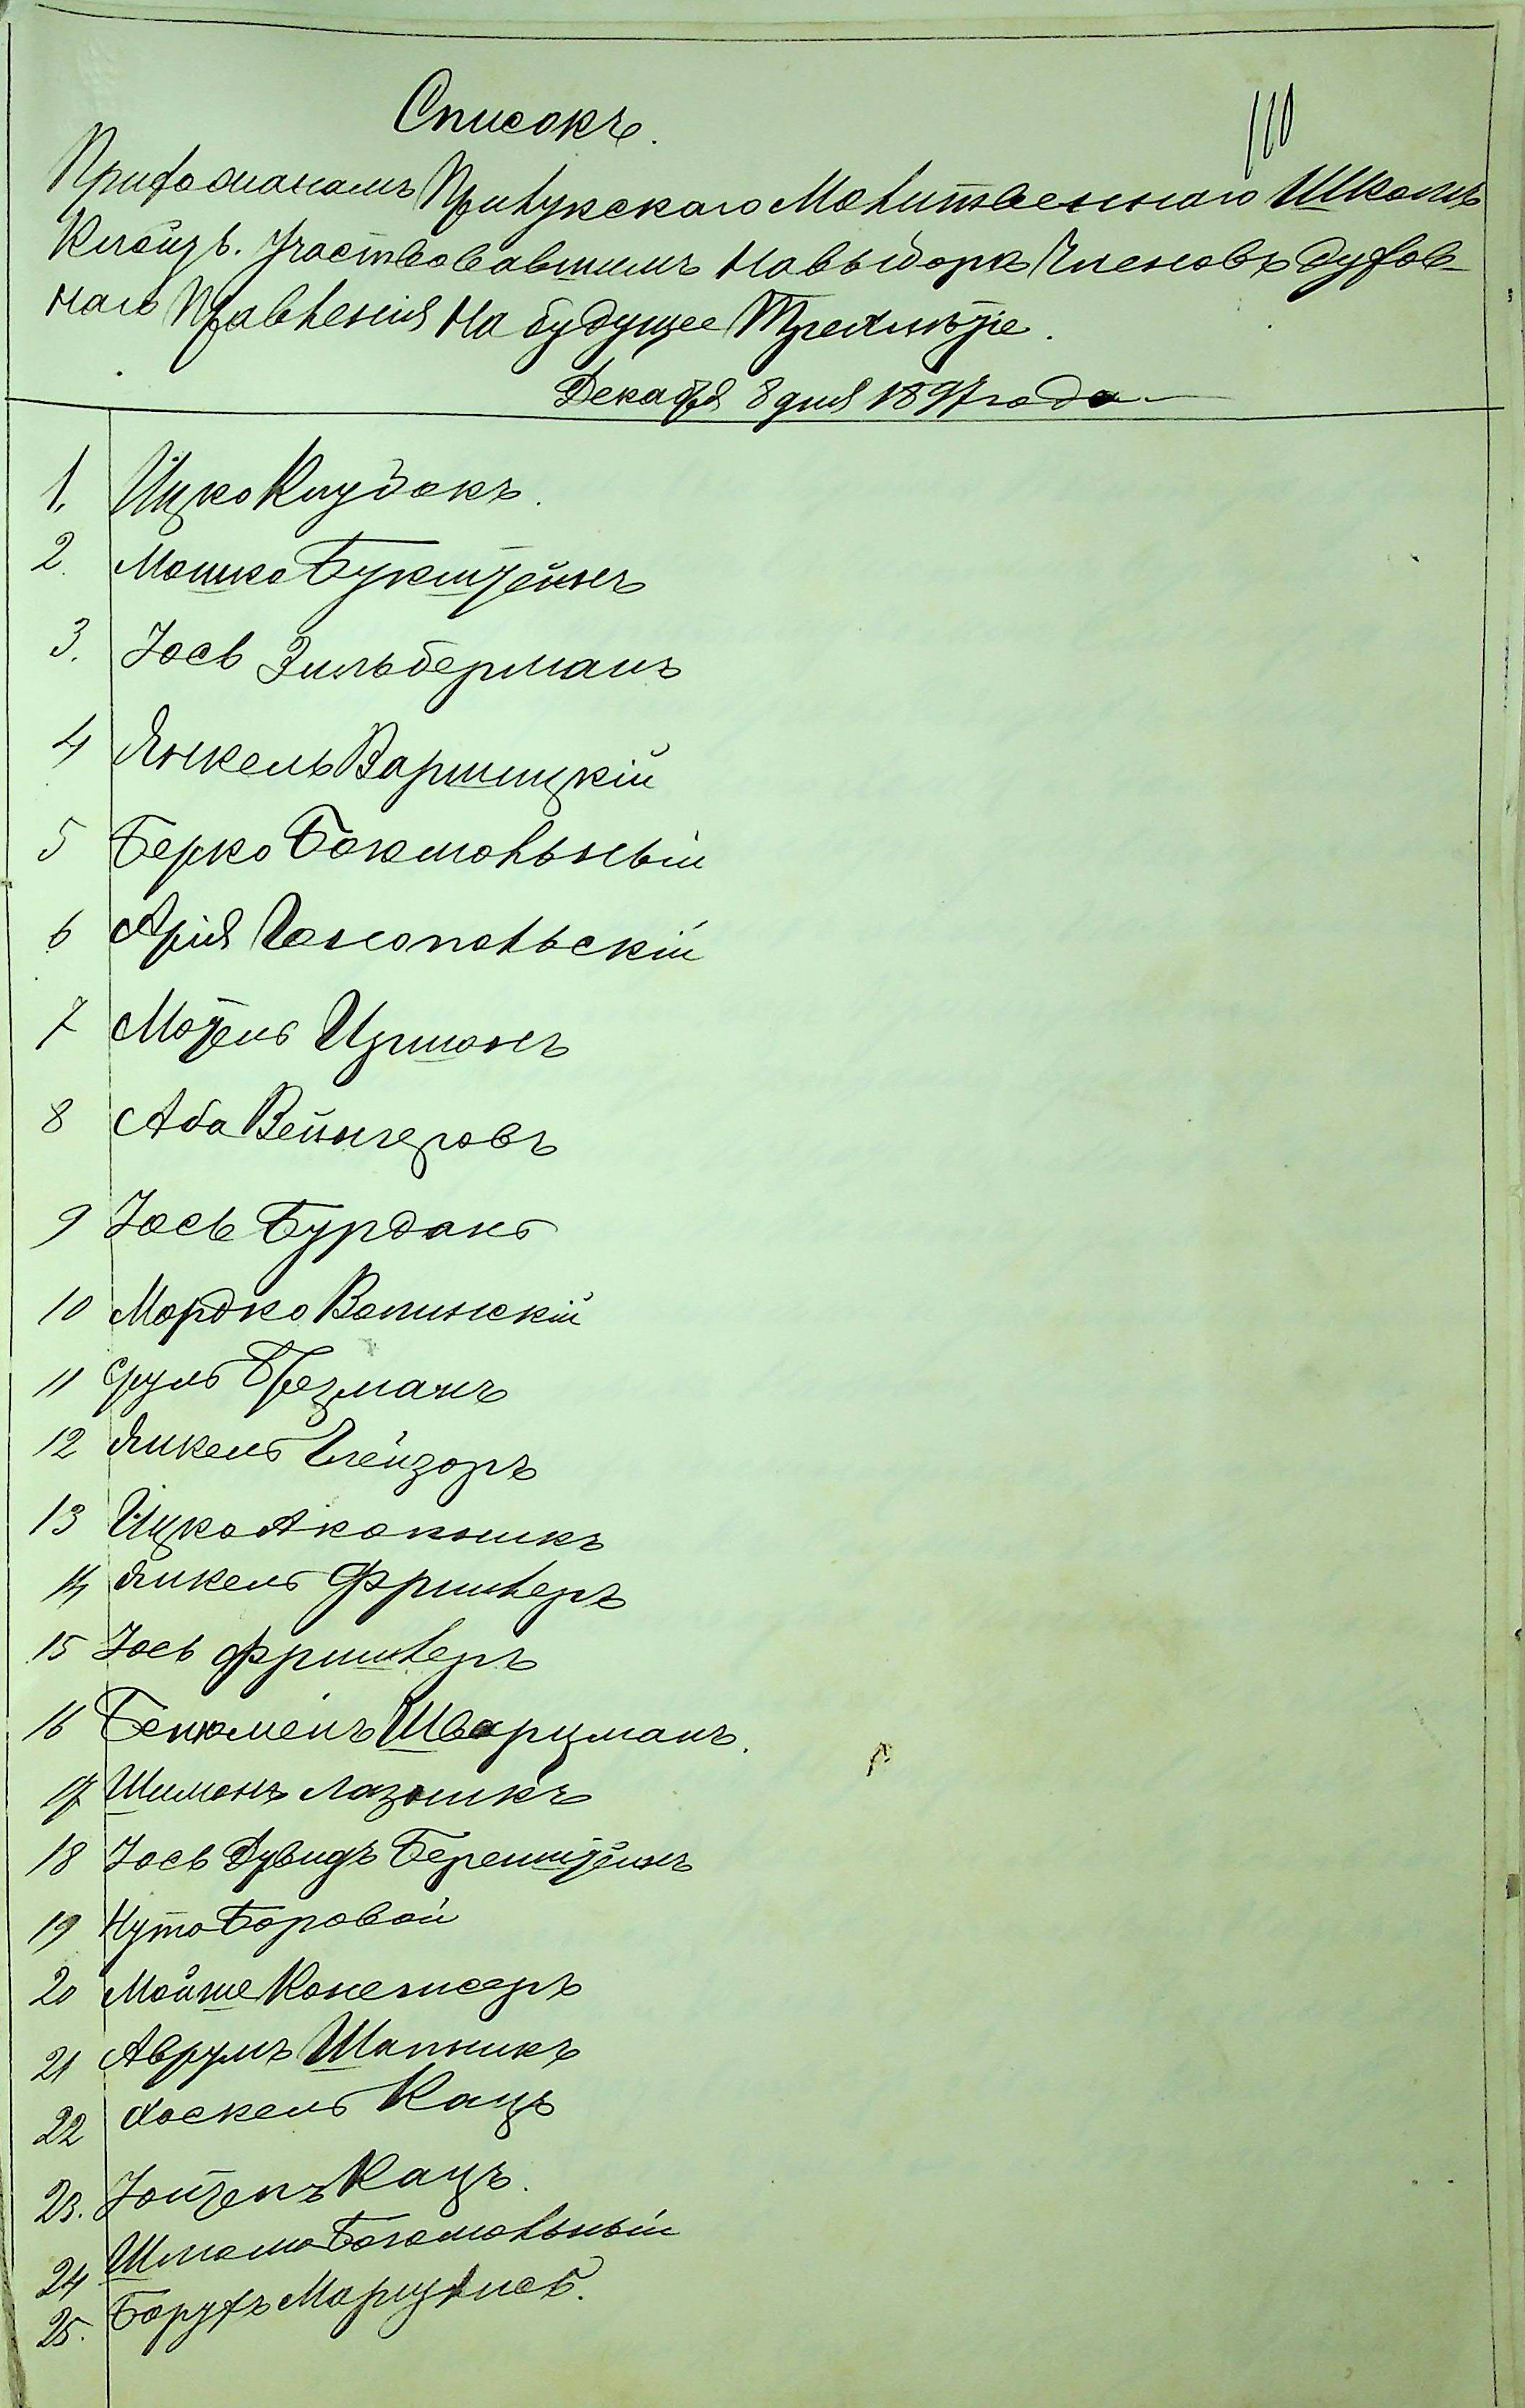 Списокъ.
110
Прихожанамъ Прилукскаго Молитвеннаго Школы
Клойзъ. Участвовавшимъ На выборъ Членовъ Духов-
наго Правленія На будущее Трехлѣтіе.
Декабря 8 дня 1897 года
1. Ицко Клубокъ.
2. Мошко Букштейнъ
3. Іось Зильберманъ
4 Янкель Варшицкій
5 Берко Богомольный
6 Арія Гонопольскій
7 Мотель Цушонъ
8 Аба Вейнгеровъ
9 Іось Бурдонъ
10 Мордко Волинскій
11 Сруль Брезманъ
12 Янкель Глейзоръ
13 Ицко Аконникъ
14 Янкель Фришлеръ
15 Іось Фришлеръ
16 Бенюмеінъ Шварцманъ.
17 Шимонъ Лазникъ
18 Іось Дувидъ Беренштейнъ
19 Нута Боровой
20 Мойше Коненсеръ
21 Аврумъ Шапникъ
22 Хоскель Кацъ
23. Іойтепъ Кацъ.
24 Шлома Богомольный
25. Борухъ Марцулисъ.